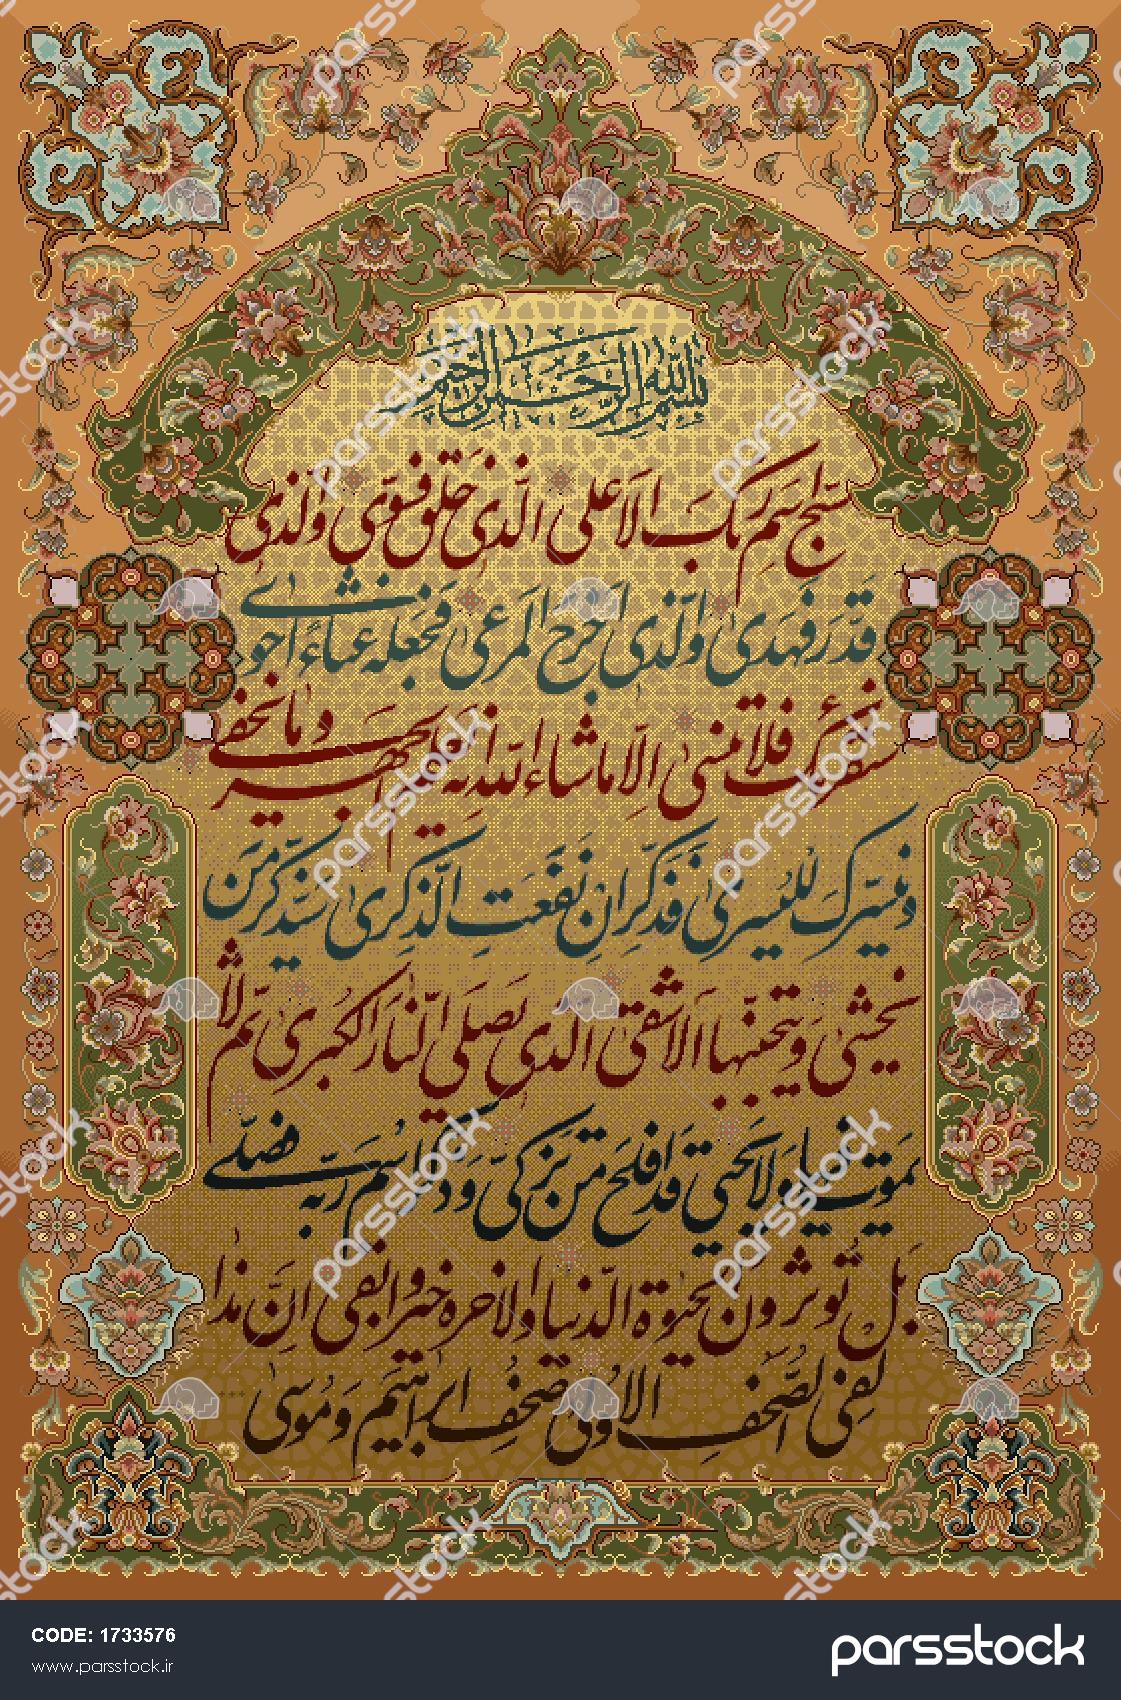 بسم الله الرحمن الرحیم
سَبِّح اسمَ رَبِّکَ الاَعلی الَّذی خَلَقَ فَسَوّی وَالَّذی
قَدَّرَ فَهَدی وَالَّذی اَخرَجَ المَرعی فَجَعَلَه غُثاءً اَحوی
سَنُقرِئُکَ فَلا تَنسی اِلّا ما شاءَ اللهُ اِنَّه یَعلَمُ الجَهرَ وَ ما یَخفی
وَ نُیَسِّرُکَ لِلیُسری فَذَکِّر اِن نَفَعَتِ الذِّکری سَیَذَّکَّرُ مَن
یَخشی وَ یَتَجَنَّبُهَا الاَشقَی الَّذی یَصلَی النّارَ الکُبری ثُمَّ لا
یَموتُ فیها وَلا یَحیی قَد اَفلَحَ مَن تَزَکّی وَ ذَکَرَ اسمَ رَبِّه فَصَلّی
بَل تُؤثِرونَ الحَیوةَ الدُّنیا وَالاخِرَةُ خَیرٌ وَ اَبقی اِنَّ هذا
لَفِی الصُّحُفِ الاولی صُحُفِ ابراهیمَ وَ موسی
CODE: 1733576
www.parsstock.ir
parsstock